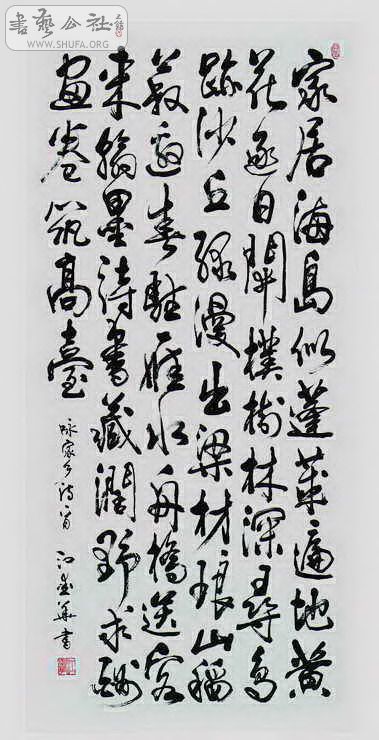 書藝公社
WWW.SHUFA.ORG
家居海島似蓬萊遍地黄
花逐日開樸樹林深尋鳥
跡沙丘綠漫出梁材琅山稻
菽迎春駐雁水舟橋送客
來翰墨詩書藏潤求
画卷筑高臺
咏家乡诗一首 江華書